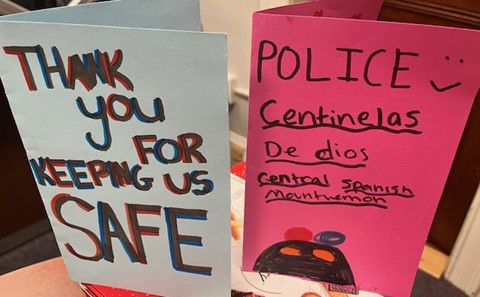 THANK
you
FOR
KEEPING US
SAFE
POLICE
Centinelas
De dios
Central Spanish
Mountvernon